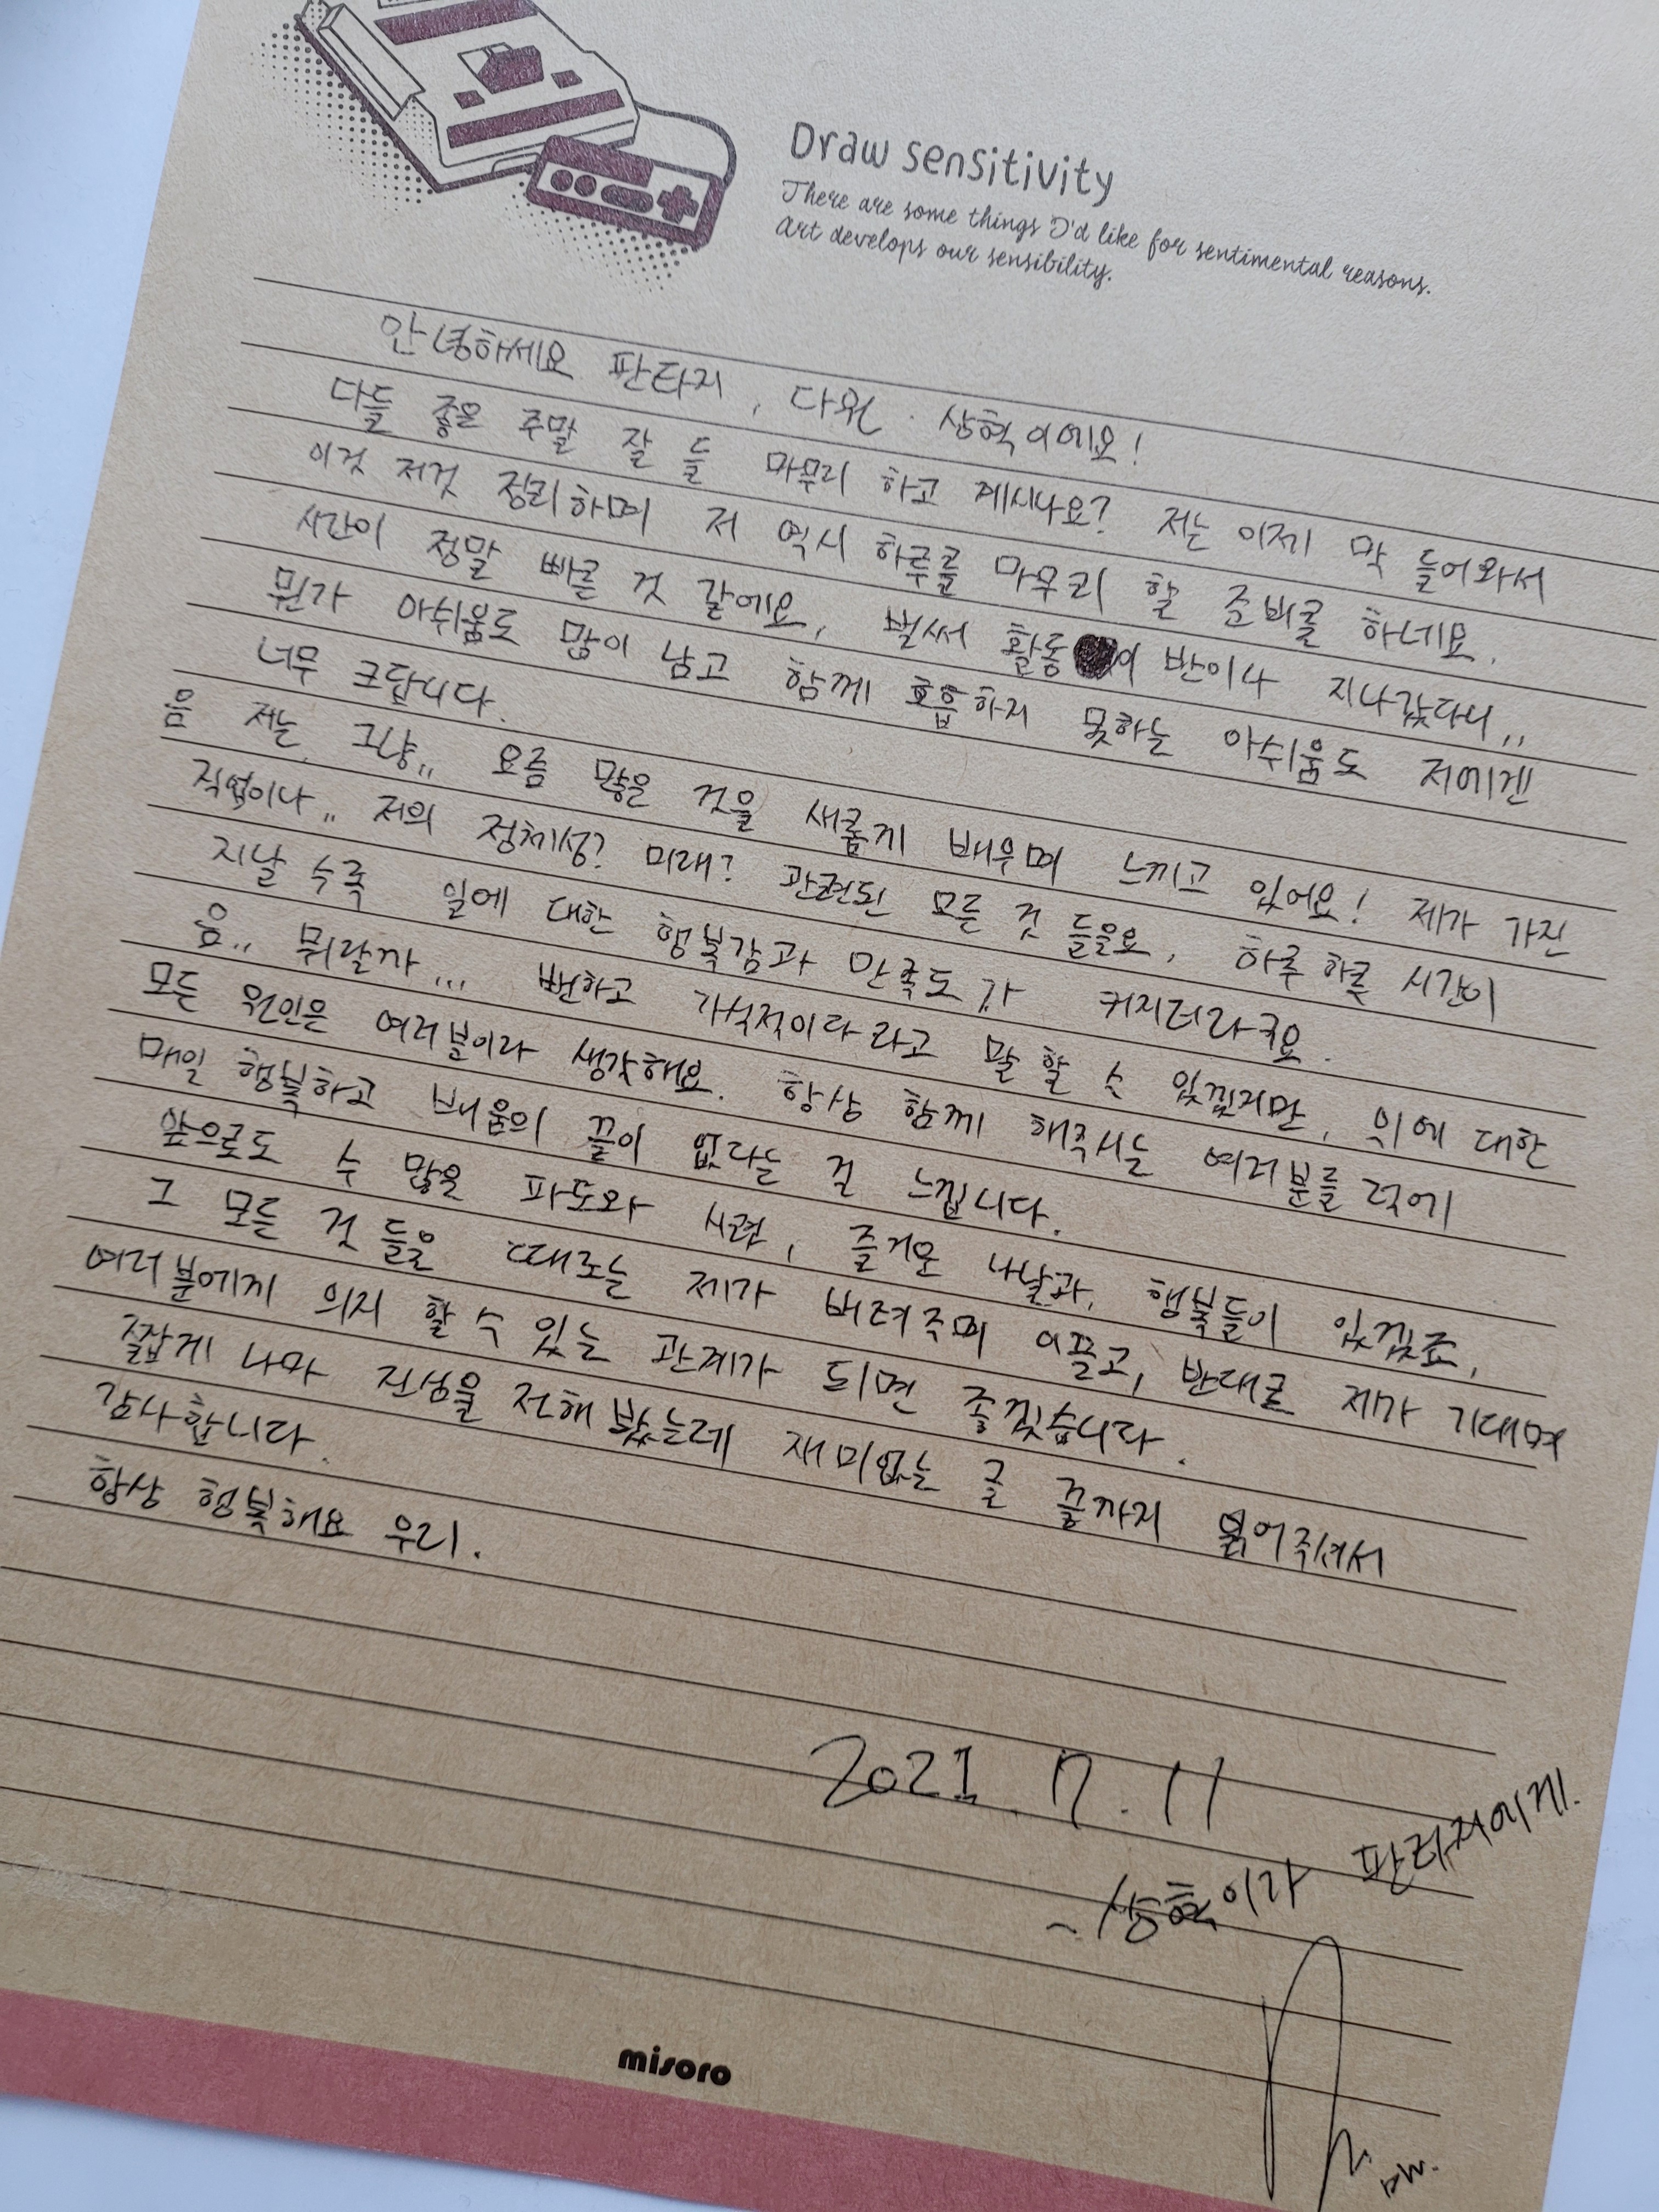 Draw sensitivity
There are some things I'd like for sentimental reasons.
Art develops our sensibility.
안녕하세요 판타지, 다원. 상혁이에요!
다들 좋은 주말 잘 들 마무리 하고 계시나요? 저는 이제 막 들어와서
이것 저것 정리하며 저 역시 하루를 마무리 할 준비를 하네요.
시간이 정말 빠른 것 같에요, 벌써 활동이 반이나 지나갔다니,,
뭔가 아쉬움도 많이 남고 함께 호흡하지 못하는 아쉬움도 저에겐
너무 크답니다.
음 저는, 그냥,, 요즘 많은 것을 새롭게 배우며 느끼고 있어요! 제가 가진
직업이나,, 저의 정체성? 미래? 관련된 모든 것 들을요, 하루 하루 시간이
지날 수록 일에 대한 행복감과 만족도가 커지더라구요.
음,, 뭐랄까... 뻔하고 가식적이다라고 말 할 수 있겠지만, 위에 대한
모든 원인은 여러분이라 생각해요. 항상 함께 해주시는 여러분들 덕에
매일 행복하고 배움의 끝이 없다는 걸 느낍니다.
앞으로도 수 많은 파도와 시련, 즐거운 나날과, 행복들이 있겠죠,
그 모든 것 들을 때로는 제가 버텨주며 이끌고, 반대로 제가 기대며
여러분에게 의지 할 수 있는 관계가 되면 좋겠습니다.
짧게 나마 진심을 전해 봤는데 재미없는 글 끝까지 읽어주셔서
감사합니다.
항상 행복해요 우리.
2021. 7. 11
~상혁이가 판타지에게.
DW.
misoro